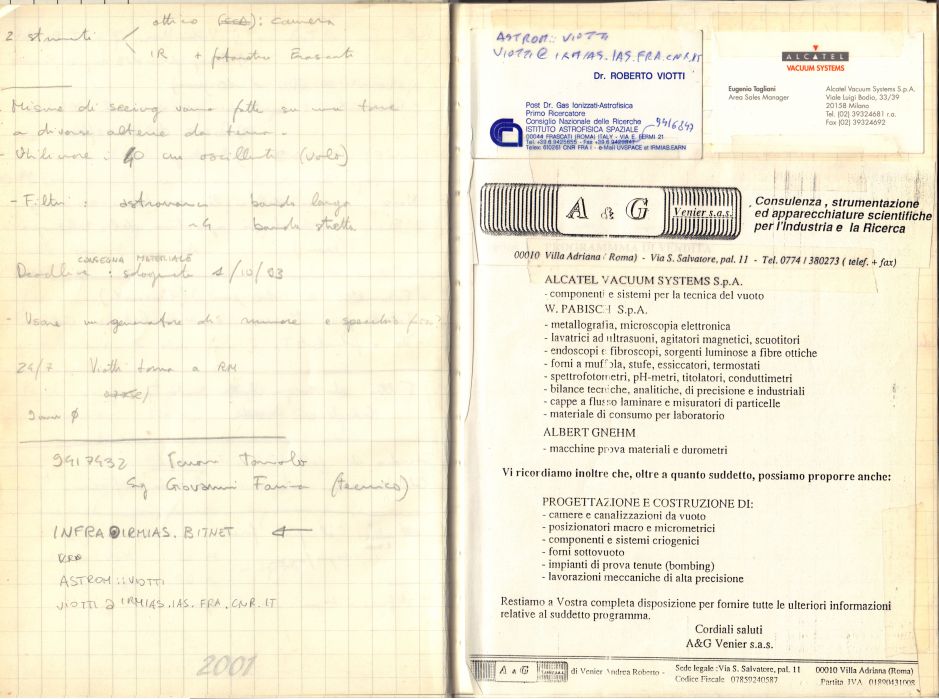 ottico (CCD): camera
2 strumenti
IR + fotometro
Misure di seeing vanno fatte su una torre
a diverse altezze da terra.
- Utilizzare: 40 cm oscillanti (Volo)
- Filtri: astronomici banda larga
~4 banda stretta
CONSEGNA MATERIALE
Deadline: 1/10/03
- Usare un generatore di rumore e
24/7 Viotti torna a RM
9417432
Sig Giovanni Farina (tecnico)
INFRA@IRMIAS.BITNET
ASTROM::VIOTTI
VIOTTI @ IRMIAS.IAS.FRA.CNR.IT
2001
ASTROM:: VIOTTI
VIOTTI@ IRMIAS.IAS.FRA.CNR.IT
Dr. ROBERTO VIOTTI
Post Dr. Gas Ionizzati-Astrofisica
Primo Ricercatore
Consiglio Nazionale delle Ricerche
ISTITUTO ASTROFISICA SPAZIALE
00044 FRASCATI (ROMA) ITALY - VIA E. FERMI 21
Tel. +39.6 9425655 - Fax +39.6 9425847
Telex: 610261 CNR FRA I - e-Mail UVSPACE at IRMIAS.EARN
9416847
ALCATEL
VACUUM SYSTEMS
Eugenio Tagliani
Area Sales Manager
Alcatel Vacuum Systems S.p.A.
Viale Luigi Bodio, 33/39
20158 Milano
Tel. (02) 39324681 r.a.
Fax (02) 39324692
A & G Venier s.a.s.
Consulenza , strumentazione
ed apparecchiature scientifiche
per l'Industria e la Ricerca
00010 Villa Adriana ( Roma) - Via S. Salvatore, pal. 11 - Tel. 0774 / 380273 ( telef. + fax)
ALCATEL VACUUM SYSTEMS S.p.A.
- componenti e sistemi per la tecnica del vuoto
W. PABISCH S.p.A.
- metallografia, microscopia elettronica
- lavatrici ad ultrasuoni, agitatori magnetici, scuotitori
- endoscopi e fibroscopi, sorgenti luminose a fibre ottiche
- forni a muffola, stufe, essiccatori, termostati
- spettrofotometri, pH-metri, titolatori, conduttimetri
- bilance tecniche, analitiche, di precisione e industriali
- cappe a flusso laminare e misuratori di particelle
- materiale di consumo per laboratorio
ALBERT GNEHM
- macchine prova materiali e durometri
Vi ricordiamo inoltre che, oltre a quanto suddetto, possiamo proporre anche:
PROGETTAZIONE E COSTRUZIONE DI:
- camere e canalizzazioni da vuoto
- posizionatori macro e micrometrici
- componenti e sistemi criogenici
- forni sottovuoto
- impianti di prova tenute (bombing)
- lavorazioni meccaniche di alta precisione
Restiamo a Vostra completa disposizione per fornire tutte le ulteriori informazioni
relative al suddetto programma.
Cordiali saluti
A&G Venier s.a.s.
A & G di Venier Andrea Roberto - Sede legale :Via S. Salvatore, pal. 11 00010 Villa Adriana (Roma)
Codice Fiscale 07859240587 Partita IVA 01890431008